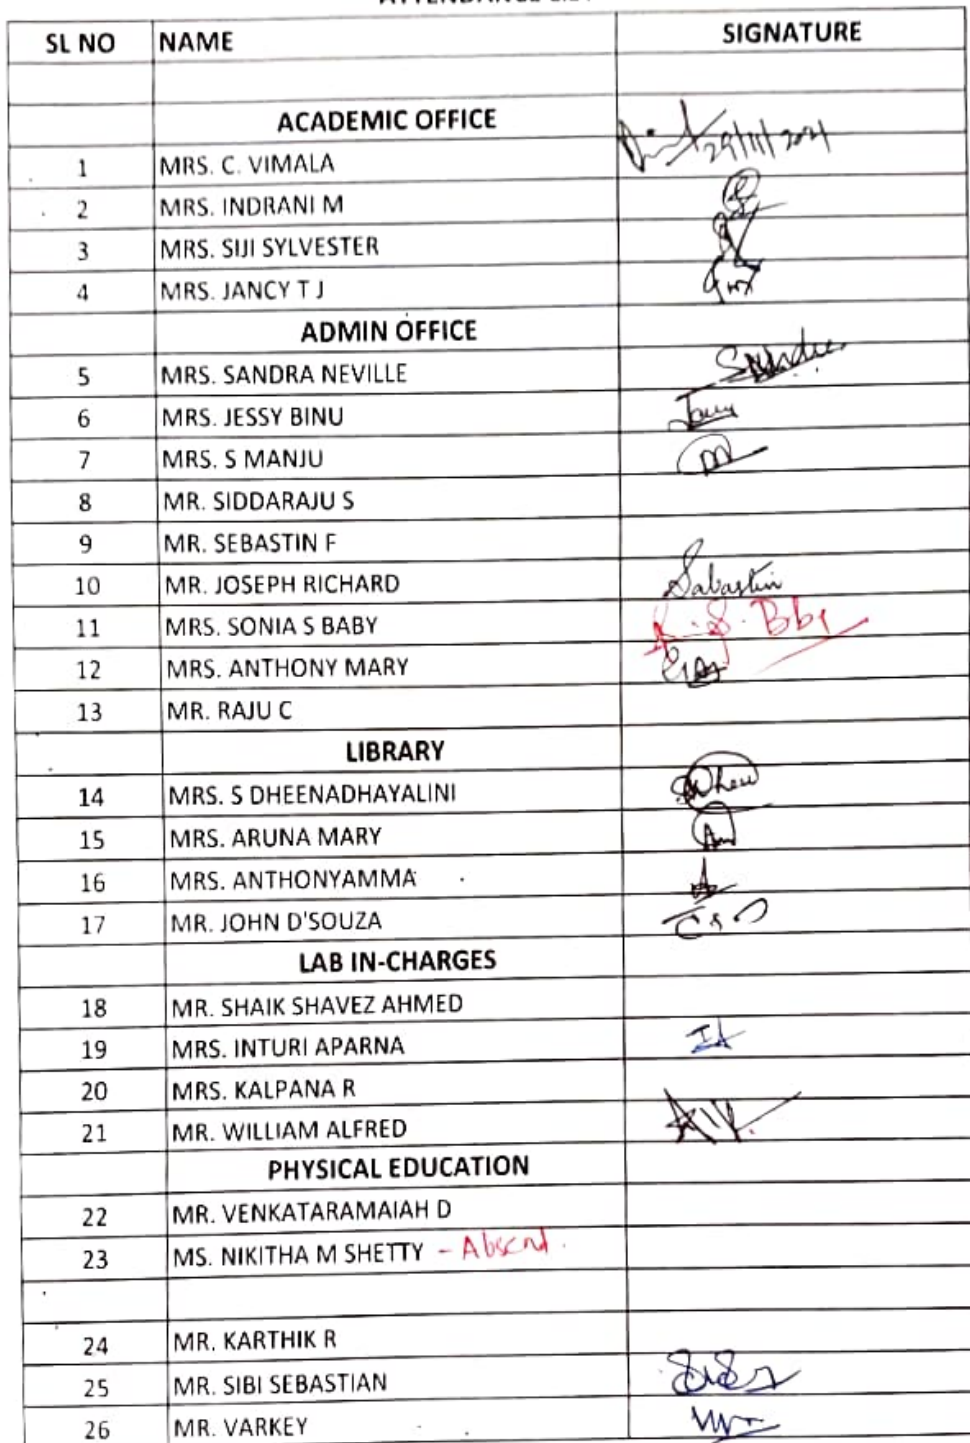 SL NO NAME SIGNATURE
ACADEMIC OFFICE
29/11/2021
1 MRS. C. VIMALA
2 MRS. INDRANI M
3 MRS. SIJI SYLVESTER
4 MRS. JANCY T J
ADMIN OFFICE
5 MRS. SANDRA NEVILLE
6 MRS. JESSY BINU
7 MRS. S MANJU
8 MR. SIDDARAJU S
9 MR. SEBASTIN F
10 MR. JOSEPH RICHARD Sabastin
11 MRS. SONIA S BABY
12 MRS. ANTHONY MARY
13 MR. RAJU C
LIBRARY
14 MRS. S DHEENADHAYALINI
15 MRS. ARUNA MARY
16 MRS. ANTHONYAMMA
17 MR. JOHN D'SOUZA
LAB IN-CHARGES
18 MR. SHAIK SHAVEZ AHMED
19 MRS. INTURI APARNA IA
20 MRS. KALPANA R
21 MR. WILLIAM ALFRED
PHYSICAL EDUCATION
22 MR. VENKATARAMAIAH D
23 MS. NIKITHA M SHETTY - Absent.
24 MR. KARTHIK R
25 MR. SIBI SEBASTIAN
26 MR. VARKEY